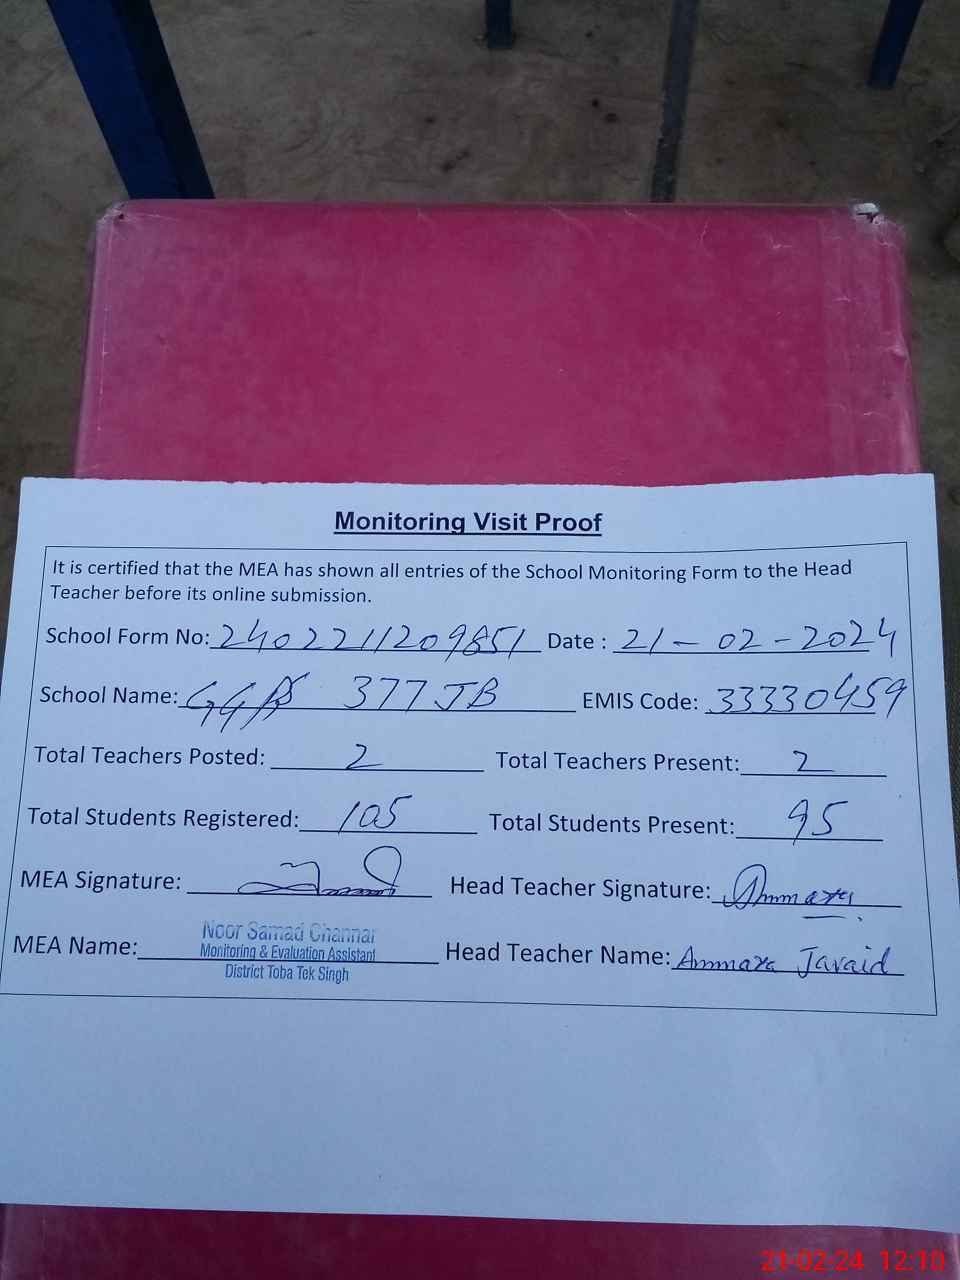 Monitoring Visit Proof
It is certified that the MEA has shown all entries of the School Monitoring Form to the Head
Teacher before its online submission.
School Form No: 2402211209851 Date : 21-02-2024
School Name: GGPS 377 JB EMIS Code: 33330459
Total Teachers Posted: 2 Total Teachers Present: 2
Total Students Registered: 105 Total Students Present: 95
MEA Signature: Head Teacher Signature: Ammara
MEA Name: Noor Samad Channar
Monitoring & Evaluation Assistant
District Toba Tek Singh
Head Teacher Name: Ammara Javaid
21-02-24 12:10